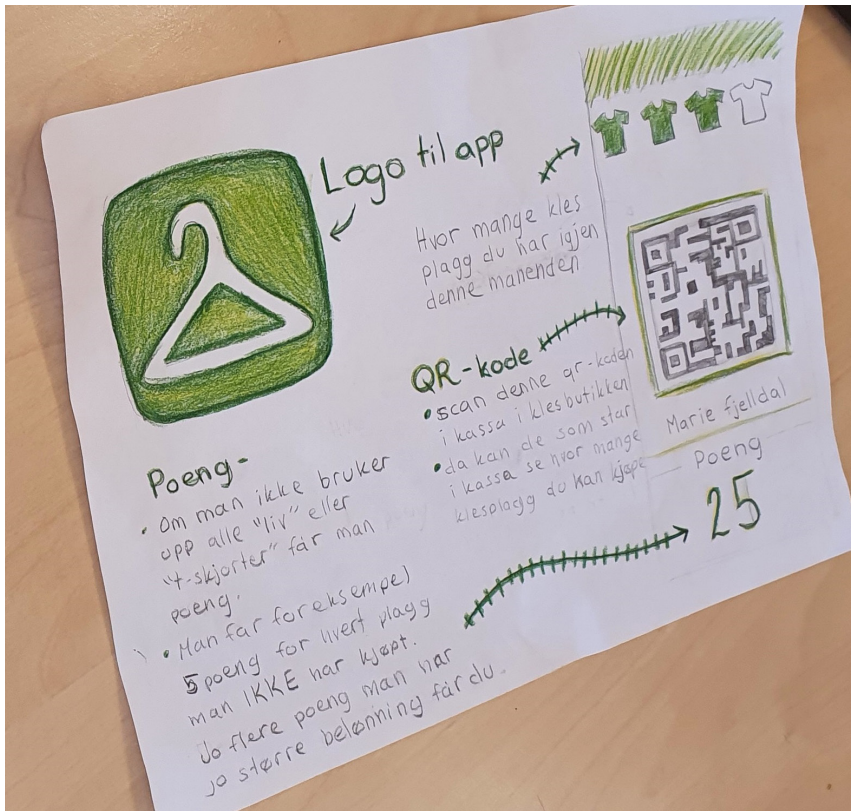 Logo til app
Hvor mange kles
plagg du har igjen
denne månenden
QR-kode
• scan denne qr-koden
i kassa i klesbutikken
• da kan de som står
i kassa se hvor mange
klesplagg du kan kjøpe
Marie fjelldal
Poeng
25
Poeng-
• Om man ikke bruker
opp alle "liv" eller
"t-skjorter" får man
poeng.
• Man får for eksempel
5 poeng for hvert plagg
man IKKE har kjøpt.
Jo flere poeng man har
jo større belønning får du.